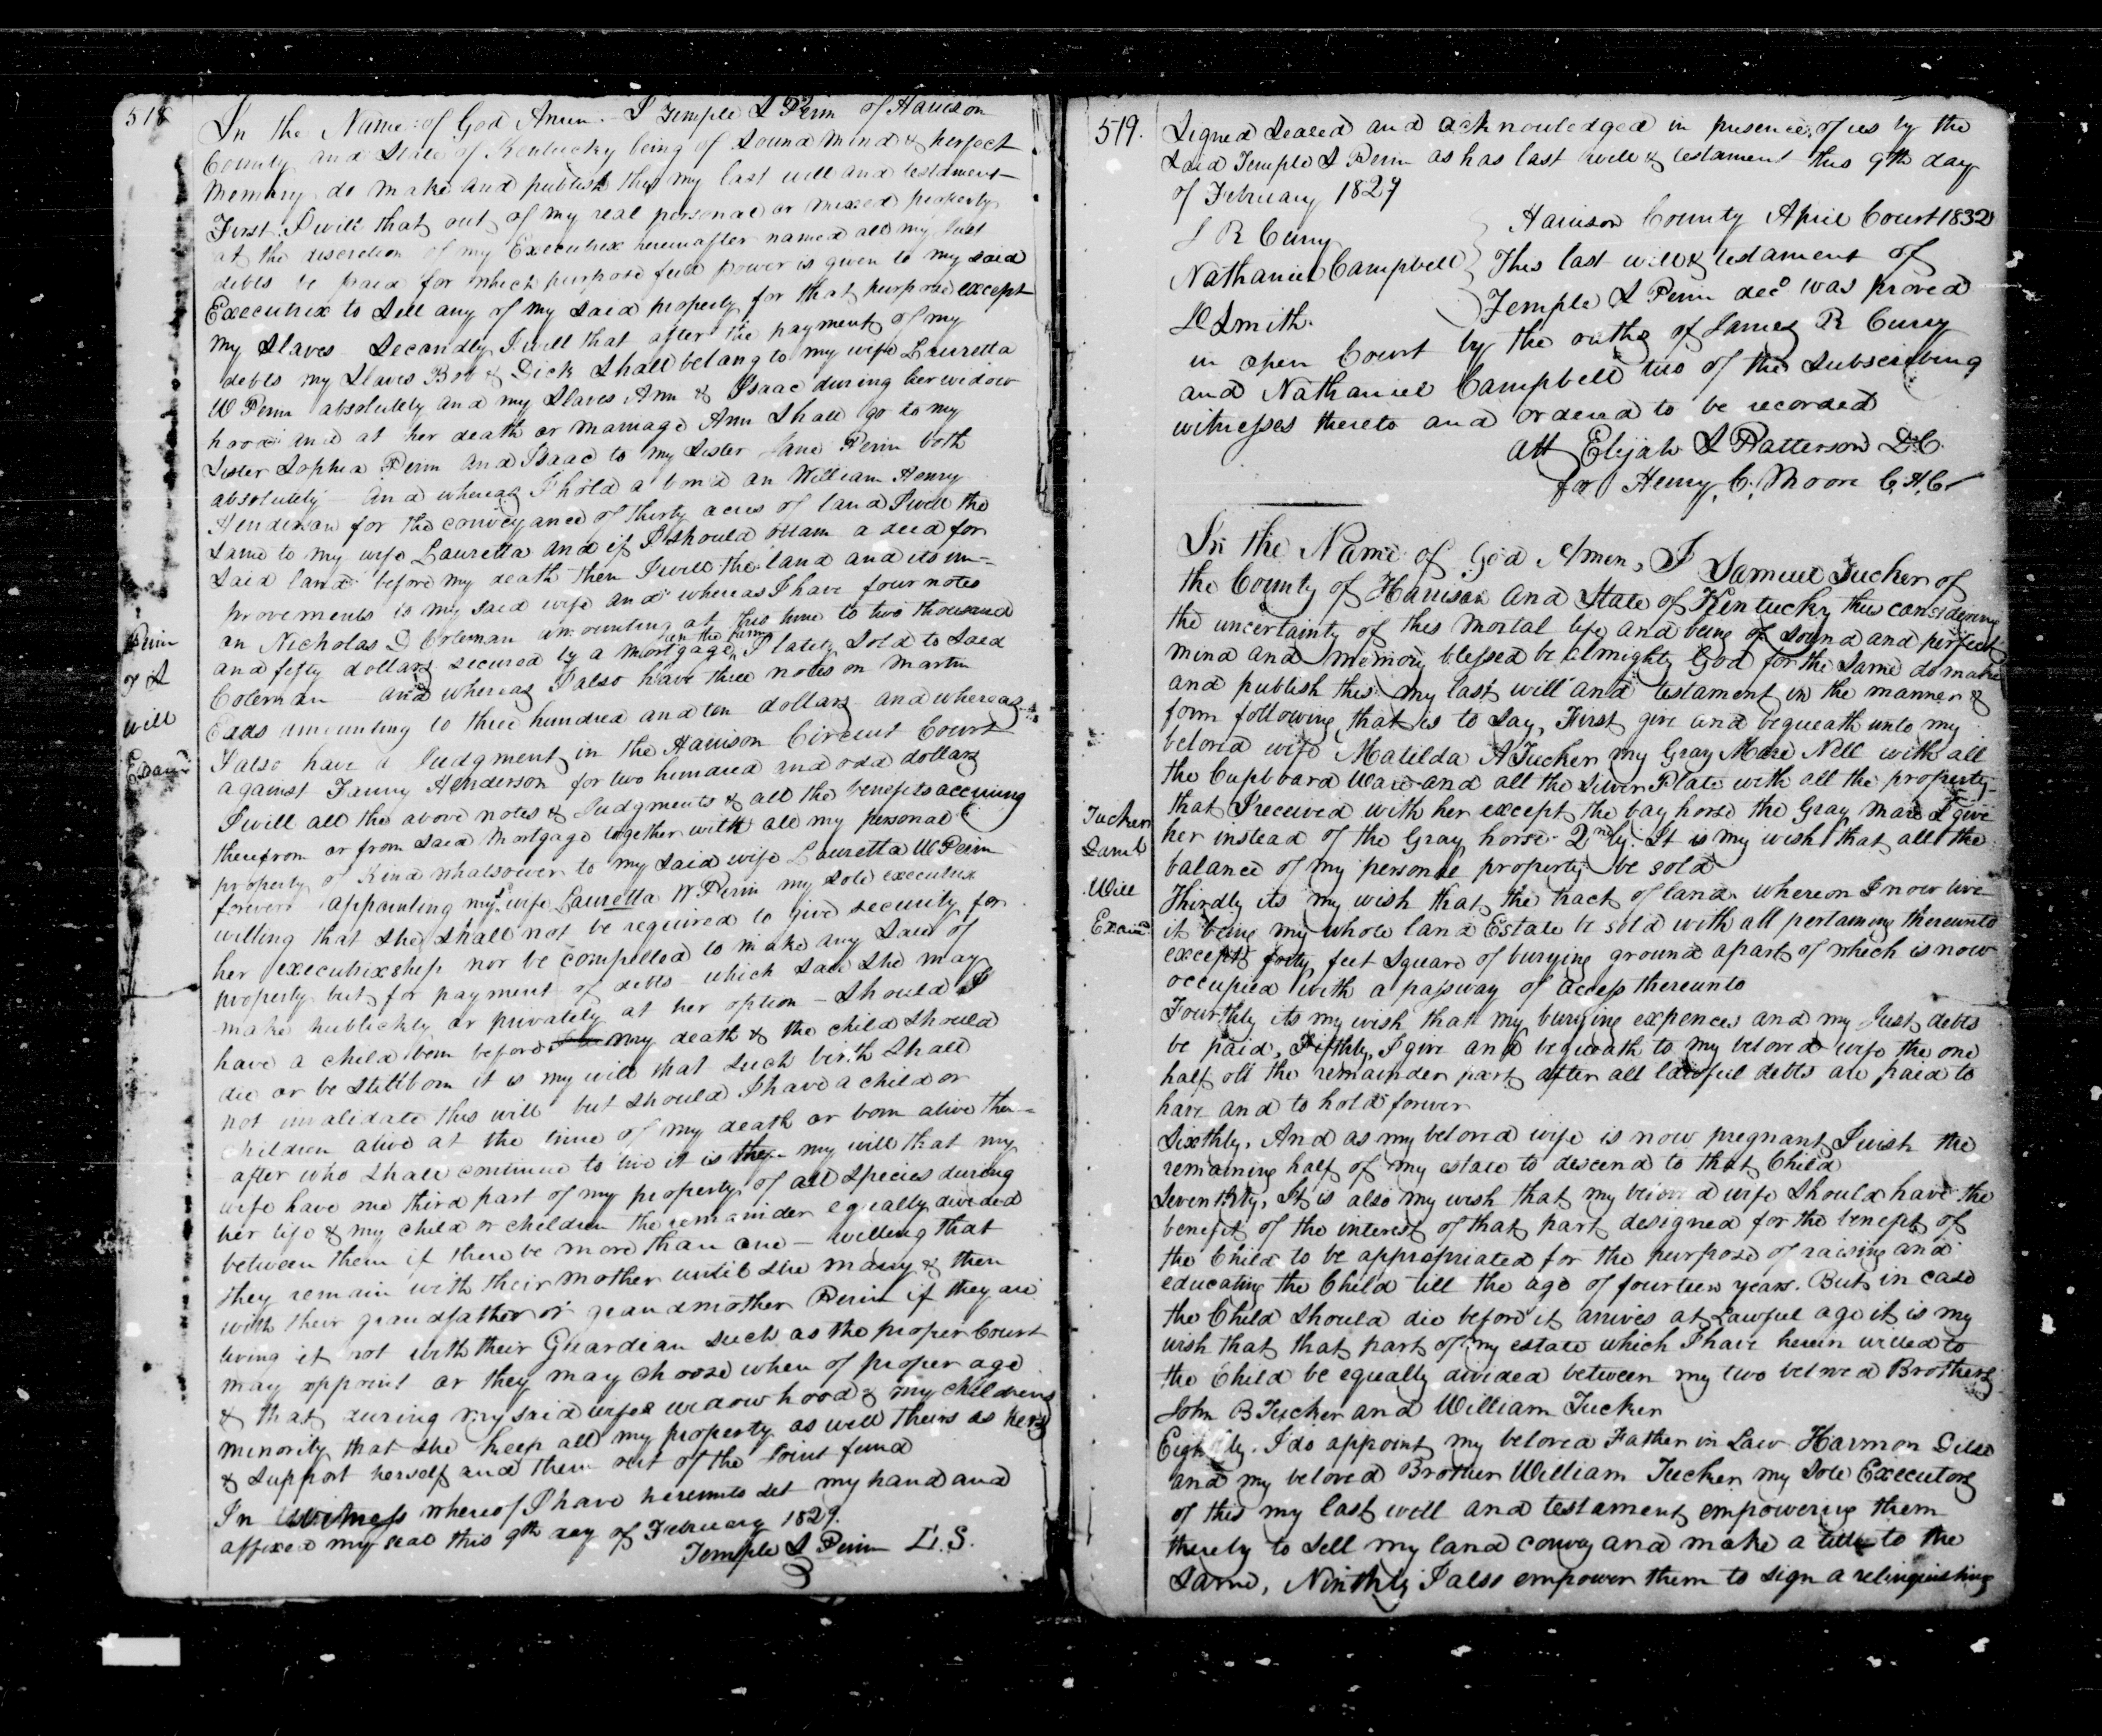 518
In the Name of God Amen. I Temple S Perin of Harrison
County and State of Kentucky being of Sound Mind & perfect
Memory do make and publish this my last will and testament
First I will that out of my real personal or mixed property
at the discretion of my Executrix hereinafter named all my Just
debts be paid for which purpose full power is given to my said
Executrix to Sell any of my said property for that purpose except
my Slaves Secondly I will that after the payment of my
debts my Slaves Bob & Dick Shall belong to my wife Lauretta
W Perin absolutely and my Slaves Ann & Isaac during her widow
hood and at her death or marriage Ann Shall go to my
Sister Sophia Perin and Isaac to my Sister Jane Perin both
absolutely and whereas I hold a bond on William Henry
Henderson for the conveyance of thirty acres of land I will the
Same to my wife Lauretta and if I should obtain a deed for
Said land before my death then I will the land and its im=
provements to my said wife and whereas I have four notes
on Nicholas D Coleman amounting at this time to two thousand
and fifty dollars secured by a Mortgage on the farm I lately Sold to Said
Coleman and whereas I also have three notes on Martin
Eads amounting to three hundred and ten dollars and whereas
I also have a Judgment in the Harrison Circuit Court
against Fanny Henderson for two hundred and odd dollars
I will all the above notes & Judgments & all the benefits accruing
therefrom or from said Mortgage together with all my personal
property of Kind whatsoever to my said wife Lauretta W Perin
forever appointing my sd wife Lauretta W. Perin my sole executrix
willing that She Shall not be required to give security for
her executrixship nor be compelled to make any Sale of
property but for payment of debts which Sale She may
make publickly or privately at her option - Should I
have a child born before my death & the child should
die or be Stillborn it is my will that such birth Shall
not invalidate this will but should I have a child or
children alive at the time of my death or born alive there=
after who Shall continue to live it is then my will that my
wife have one third part of my property of all Species during
her life & my child or children the remainder equally divided
between them if there be more than one - willing that
they remain with their mother until she marry & then
with their grandfather or grandmother Perin if they are
living if not with their Guardian Such as the proper Court
may appoint or they may choose when of proper age
& that during my said wifes widowhood & my childrens
minority that she keep all my property as well theirs as hers
& Support herself and them out of the Joint fund
In Witness whereof I have hereunto Set my hand and
affixed my seal this 9th day of February 1829.
Temple S Perin L.S.
Perin
will
Examd
519.
Signed Sealed and acknowledged in presence of us by the
Said Temple S Perin as has last will & testament this 9th day
of February 1829
J R Curry
Nathaniel Campbell
D Smith.
Harrison County April Court 1832
This last will & testament of
Temple S Perin decd was proved
in open Court by the oaths of James R Curry
and Nathaniel Campbell two of the Subscribing
witnesses thereto and ordered to be recorded
Att Elijah S Patterson D.C.
for Henry C. Moore C.H.C.
In the Name of God Amen, I Samuel Tucker of
the County of Harrison and State of Kentucky this considering
the uncertainty of this Mortal life and being of sound and perfect
mind and memory blessed be almighty God for the Same do make
and publish this my last will and testament in the manner &
form following that is to Say, First give and bequeath unto my
beloved wife Matilda A Tucker my Gray Mare Nell with all
the Cupboard Ware and all the Silver Plate with all the property
that I received with her except the bay horse the Gray Mare I give
her instead of the Gray horse. 2ndly. It is my wish that all the
balance of my personal property be sold
Thirdly its my wish that the tract of land whereon I now live
it being my whole land Estate be sold with all pertaining thereunto
except forty feet Square of burying ground apart of which is now
occupied with a passway of access thereunto
Fourthly its my wish that my burying expences and my Just debts
be paid, Fifthly, I give and bequeath to my beloved wife the one
half off the remainder part after all lawful debts are paid to
have and to hold forever
Sixthly. And as my beloved wife is now pregnant I wish the
remaining half of my estate to descend to that Child
Seventhly, It is also my wish that my beloved wife Should have the
benefit of the interest of that part designed for the benefit of
the Child to be appropriated for the purpose of raising and
educating the Child till the age of fourteen years. But in case
the Child Should die before it arrives at Lawful age it is my
wish that that part of my estate which I have herein willed to
the Child be equally divided between my two beloved Brothers
John B Tucker and William Tucker
Eighthly. I do appoint my beloved Father in Law Harmon
and my beloved Brother William Tucker my Sole Executors
of this my last will and testament empowering them
thereby to Sell my land convey and make a title to the
Same, Ninthly I also empower them to sign a relinquishing
Tucker
Saml
Will
Examd